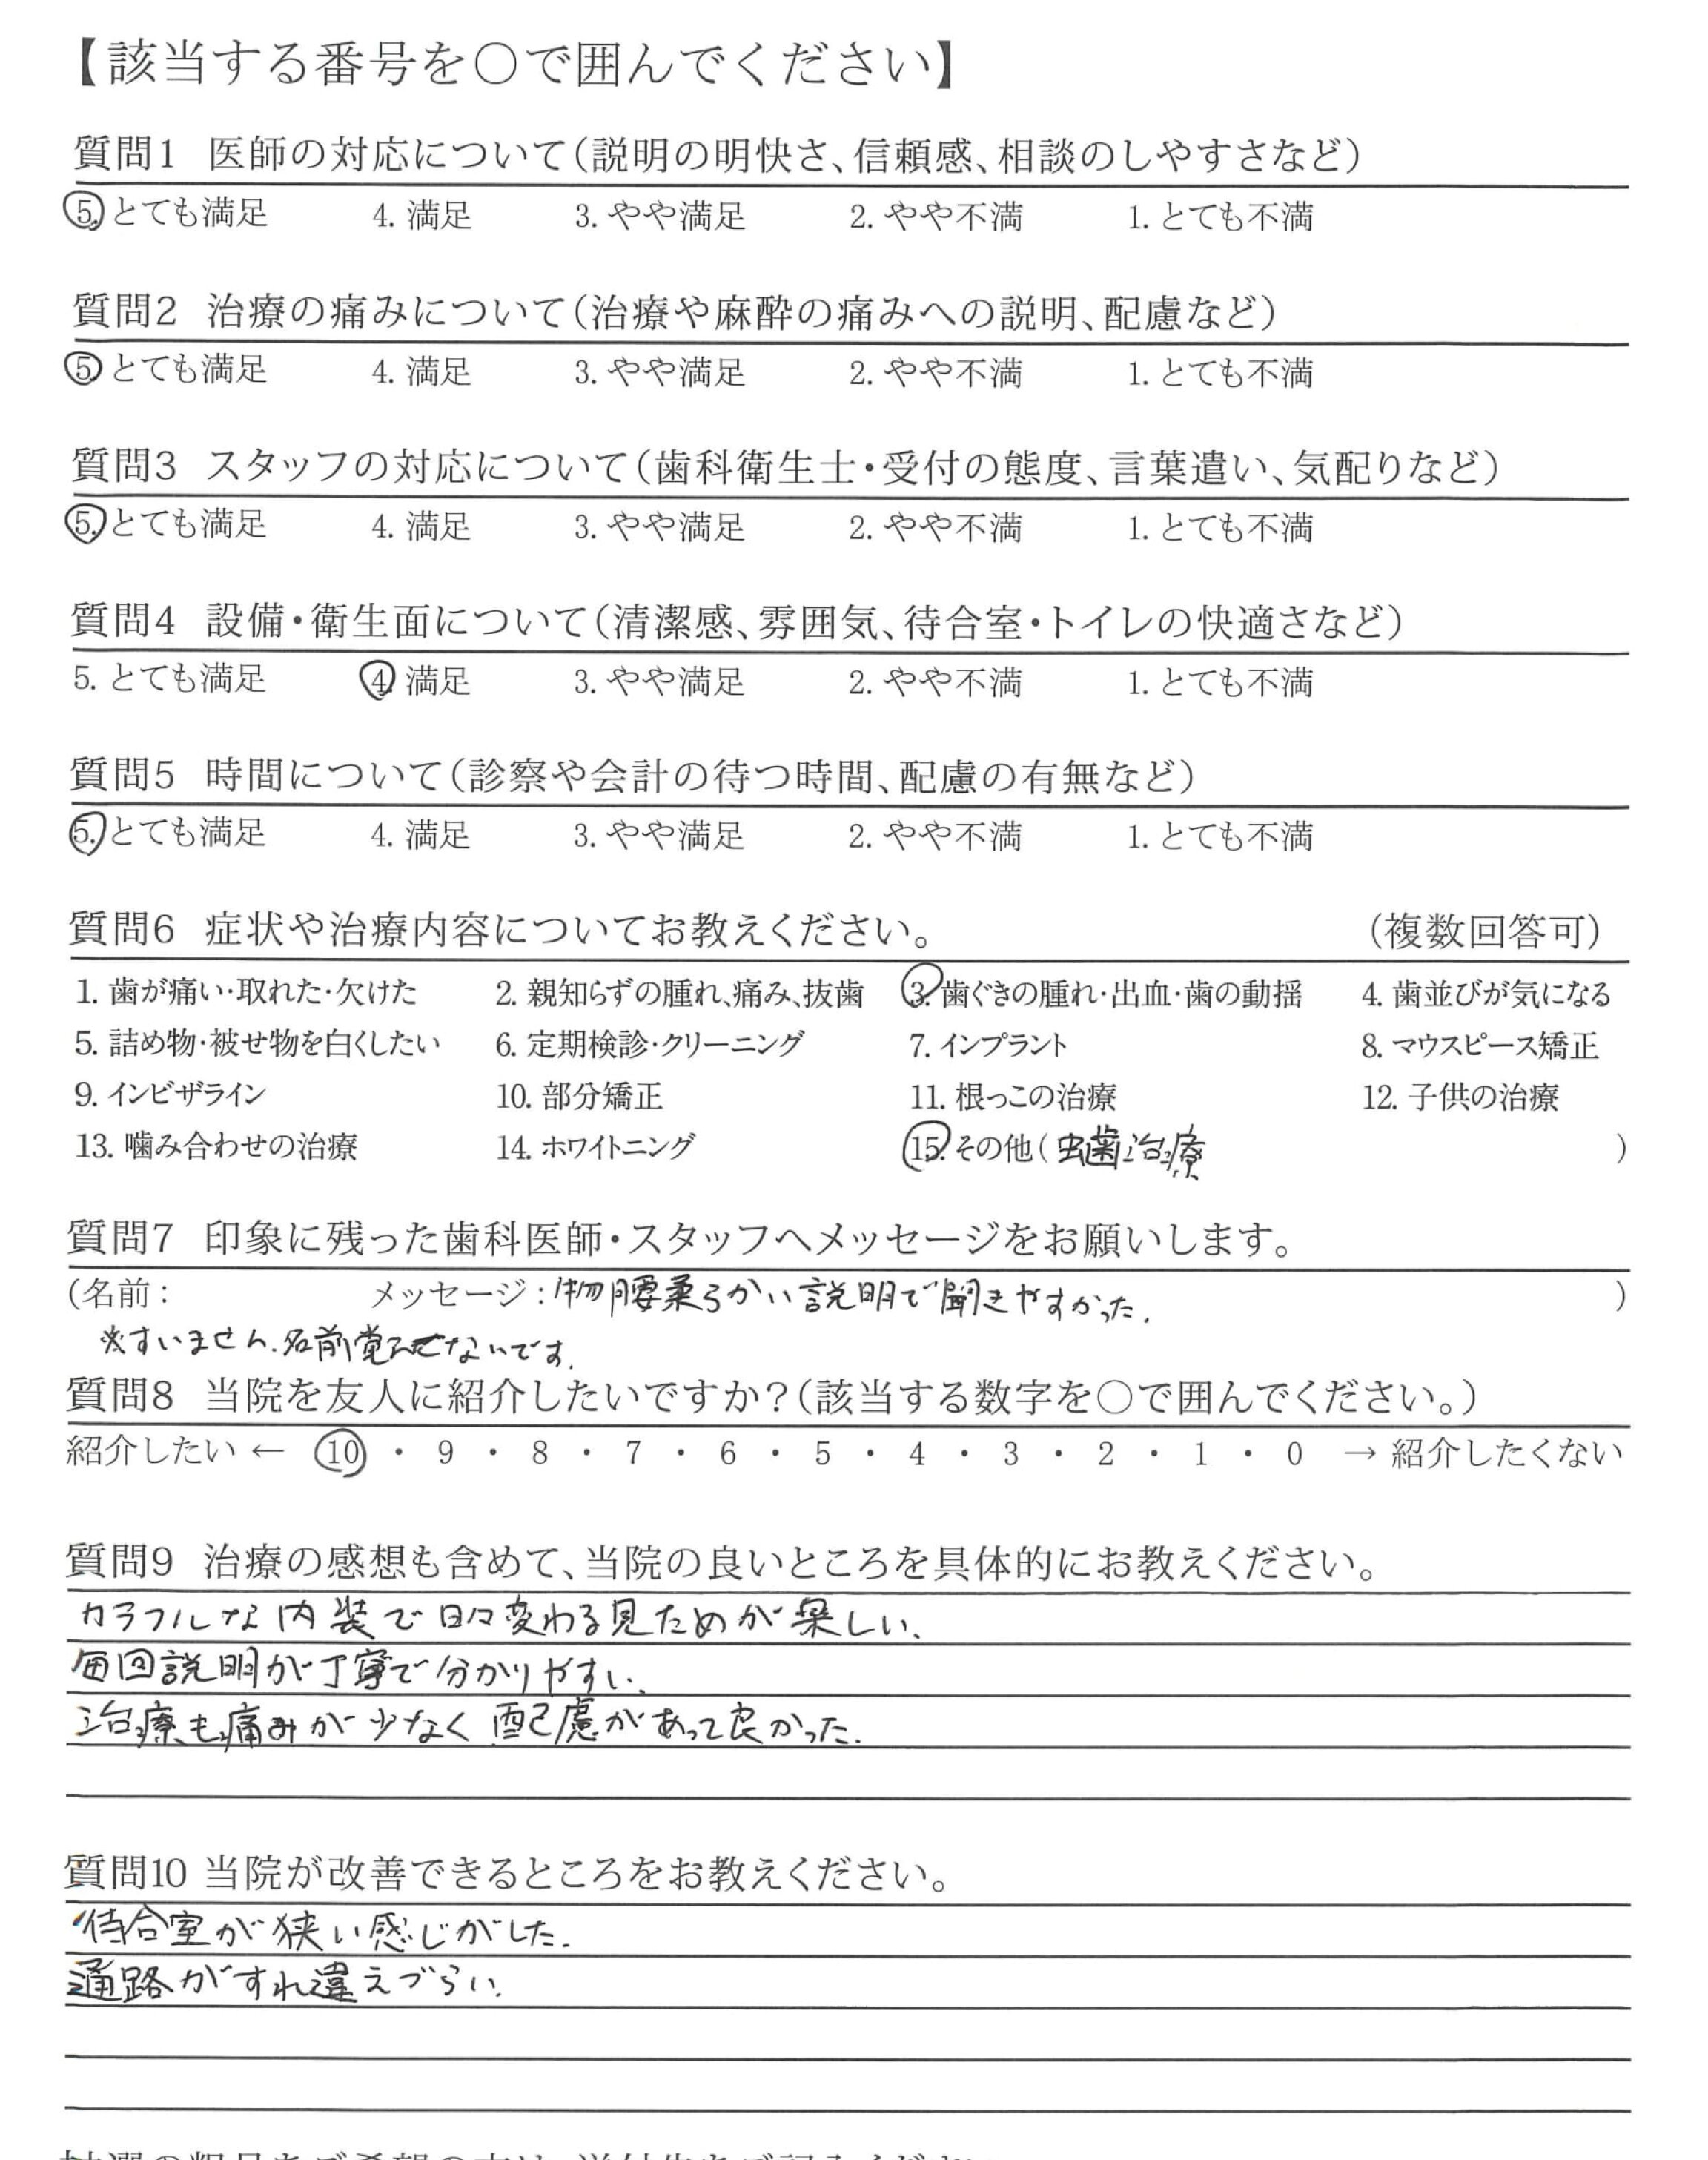 【該当する番号を〇で囲んでください】
質問1 医師の対応について(説明の明快さ、信頼感、相談のしやすさなど)
5. とても満足 4. 満足 3. やや満足 2. やや不満 1. とても不満
質問2 治療の痛みについて(治療や麻酔の痛みへの説明、配慮など)
5. とても満足 4. 満足 3. やや満足 2. やや不満 1. とても不満
質問3 スタッフの対応について(歯科衛生士・受付の態度、言葉遣い、気配りなど)
5. とても満足 4. 満足 3. やや満足 2. やや不満 1. とても不満
質問4 設備・衛生面について(清潔感、雰囲気、待合室・トイレの快適さなど)
5. とても満足 4. 満足 3. やや満足 2. やや不満 1. とても不満
質問5 時間について(診察や会計の待つ時間、配慮の有無など)
5. とても満足 4. 満足 3. やや満足 2. やや不満 1. とても不満
質問6 症状や治療内容についてお教えください。 (複数回答可)
1. 歯が痛い・取れた・欠けた 2. 親知らずの腫れ、痛み、抜歯 3. 歯ぐきの腫れ・出血・歯の動揺 4. 歯並びが気になる
5. 詰め物・被せ物を白くしたい 6. 定期検診・クリーニング 7. インプラント 8. マウスピース矯正
9. インビザライン 10. 部分矯正 11. 根っこの治療 12. 子供の治療
13. 噛み合わせの治療 14. ホワイトニング 15. その他(虫歯治療 )
質問7 印象に残った歯科医師・スタッフへメッセージをお願いします。
(名前: メッセージ:物腰柔らかい説明で聞きやすかった. )
※すいません.名前覚えてないです.
質問8 当院を友人に紹介したいですか?(該当する数字を〇で囲んでください。)
紹介したい ← 10 ・ 9 ・ 8 ・ 7 ・ 6 ・ 5 ・ 4 ・ 3 ・ 2 ・ 1 ・ 0 → 紹介したくない
質問9 治療の感想も含めて、当院の良いところを具体的にお教えください。
カラフルな内装で日々変わる見ためが楽しい.
毎回説明が丁寧で分かりやすい.
治療も痛みが少なく配慮があって良かった.
質問10 当院が改善できるところをお教えください。
待合室が狭い感じがした.
通路がすれ違えづらい.